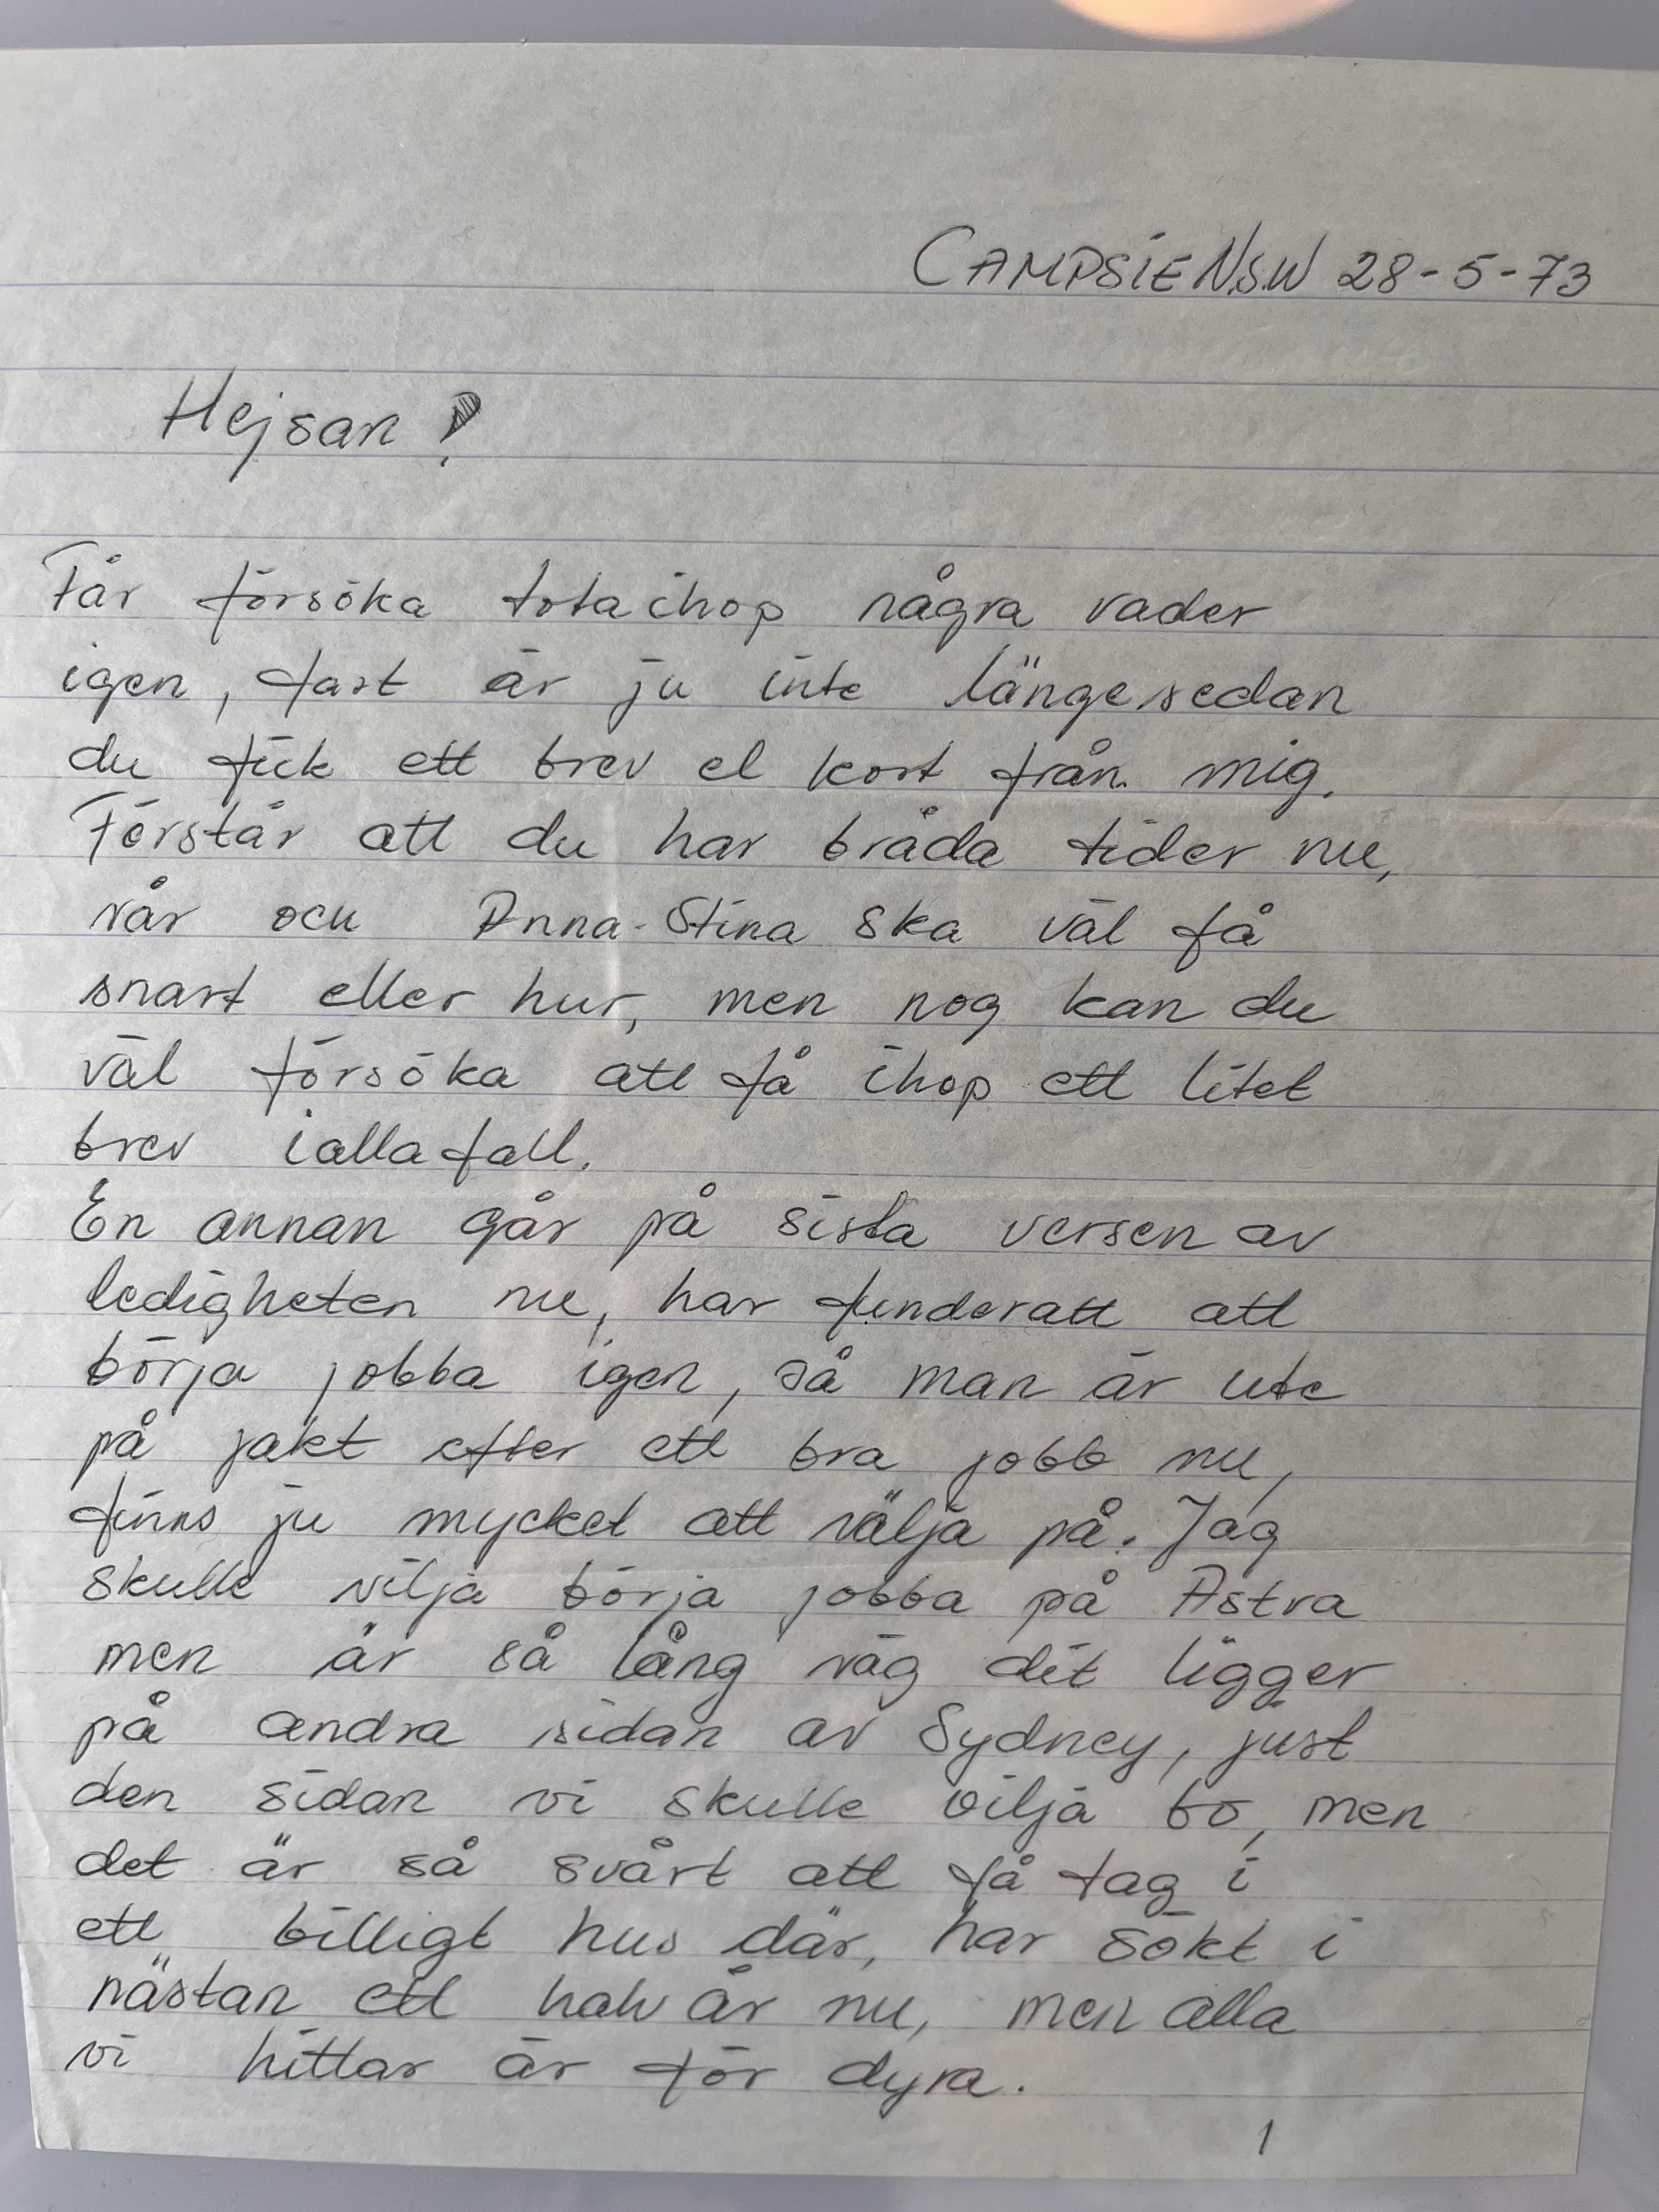 CAMPSIE N.S.W 28-5-73
Hejsan!
Får försöka tota ihop några rader
igen, fast är ju inte länge sedan
du fick ett brev el kort från mig.
Förstår att du har bråda tider nu,
vår och Anna-Stina ska väl få
snart eller hur, men nog kan du
väl försöka att få ihop ett litet
brev iallafall.
En annan går på sista versen av
ledigheten nu, har funderatt att
börja jobba igen, så man är ute
på jakt efter ett bra jobb nu,
finns ju mycket att välja på. Jag
skulle vilja börja jobba på Astra
men är så lång väg dit ligger
på andra sidan av Sydney, just
den sidan vi skulle vilja bo, men
det är så svårt att få tag i
ett billigt hus där, har sökt i
nästan ett halv år nu, men alla
vi hittar är för dyra.
1